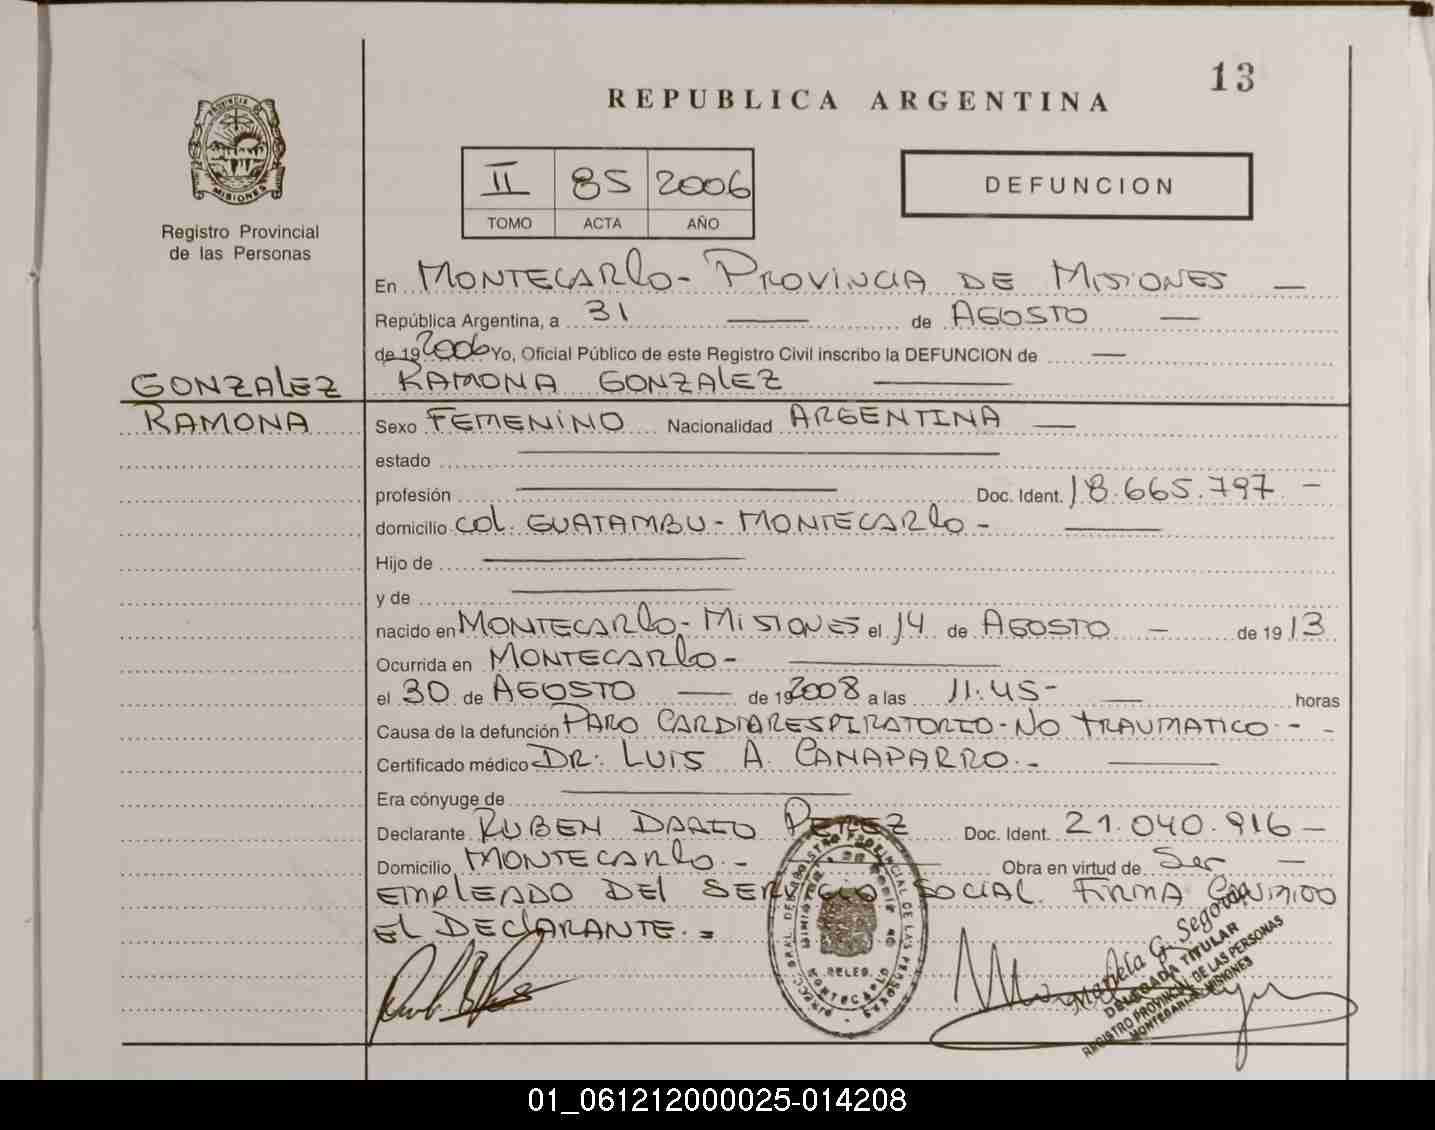 13
REPUBLICA ARGENTINA
PROVINCIA D
MISIONES
Registro Provincial
de las Personas
II 85 2006
TOMO ACTA AÑO
DEFUNCION
En MONTECARLO - PROVINCIA DE MISIONES —
República Argentina, a 31 — de AGOSTO —
de 19 2006 Yo, Oficial Público de este Registro Civil inscribo la DEFUNCION de —
GONZALEZ RAMONA GONZALEZ —
RAMONA Sexo FEMENINO Nacionalidad ARGENTINA —
estado —
profesión — Doc. Ident. 18.665.797 -
domicilio COL. GUATAMBU - MONTECARLO - —
Hijo de —
y de —
nacido en MONTECARLO - MISIONES el 14 de AGOSTO - de 19 13
Ocurrida en MONTECARLO - —
el 30 de AGOSTO — de 19 2008 a las 11:45 - — horas
Causa de la defunción PARO CARDIARESPIRATORIO - NO TRAUMATICO - -
Certificado médico DR: LUIS A. CANAPARRO. - —
Era cónyuge de —
Declarante RUBEN DARIO PEREZ Doc. Ident. 21.040.916 —
Domicilio MONTECARLO. - — Obra en virtud de Ser —
EMPLEADO DEL SERVICIO SOCIAL. FIRMA CONMIGO
EL DECLARANTE. =
MONTECARLO
Mariela G. Segovia
DELEGADA TITULAR
REGISTRO PROVINCIAL DE LAS PERSONAS
MONTECARLO MISIONES
01_061212000025-014208